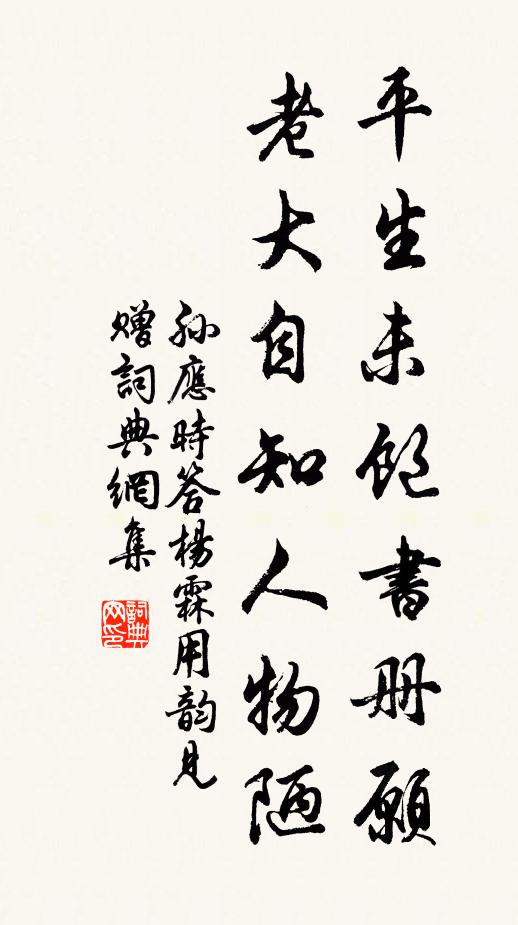 平生未飽書册願
老大自知人物陋
孫應時答楊霖用韵見
贈詞典網集
詞典網印